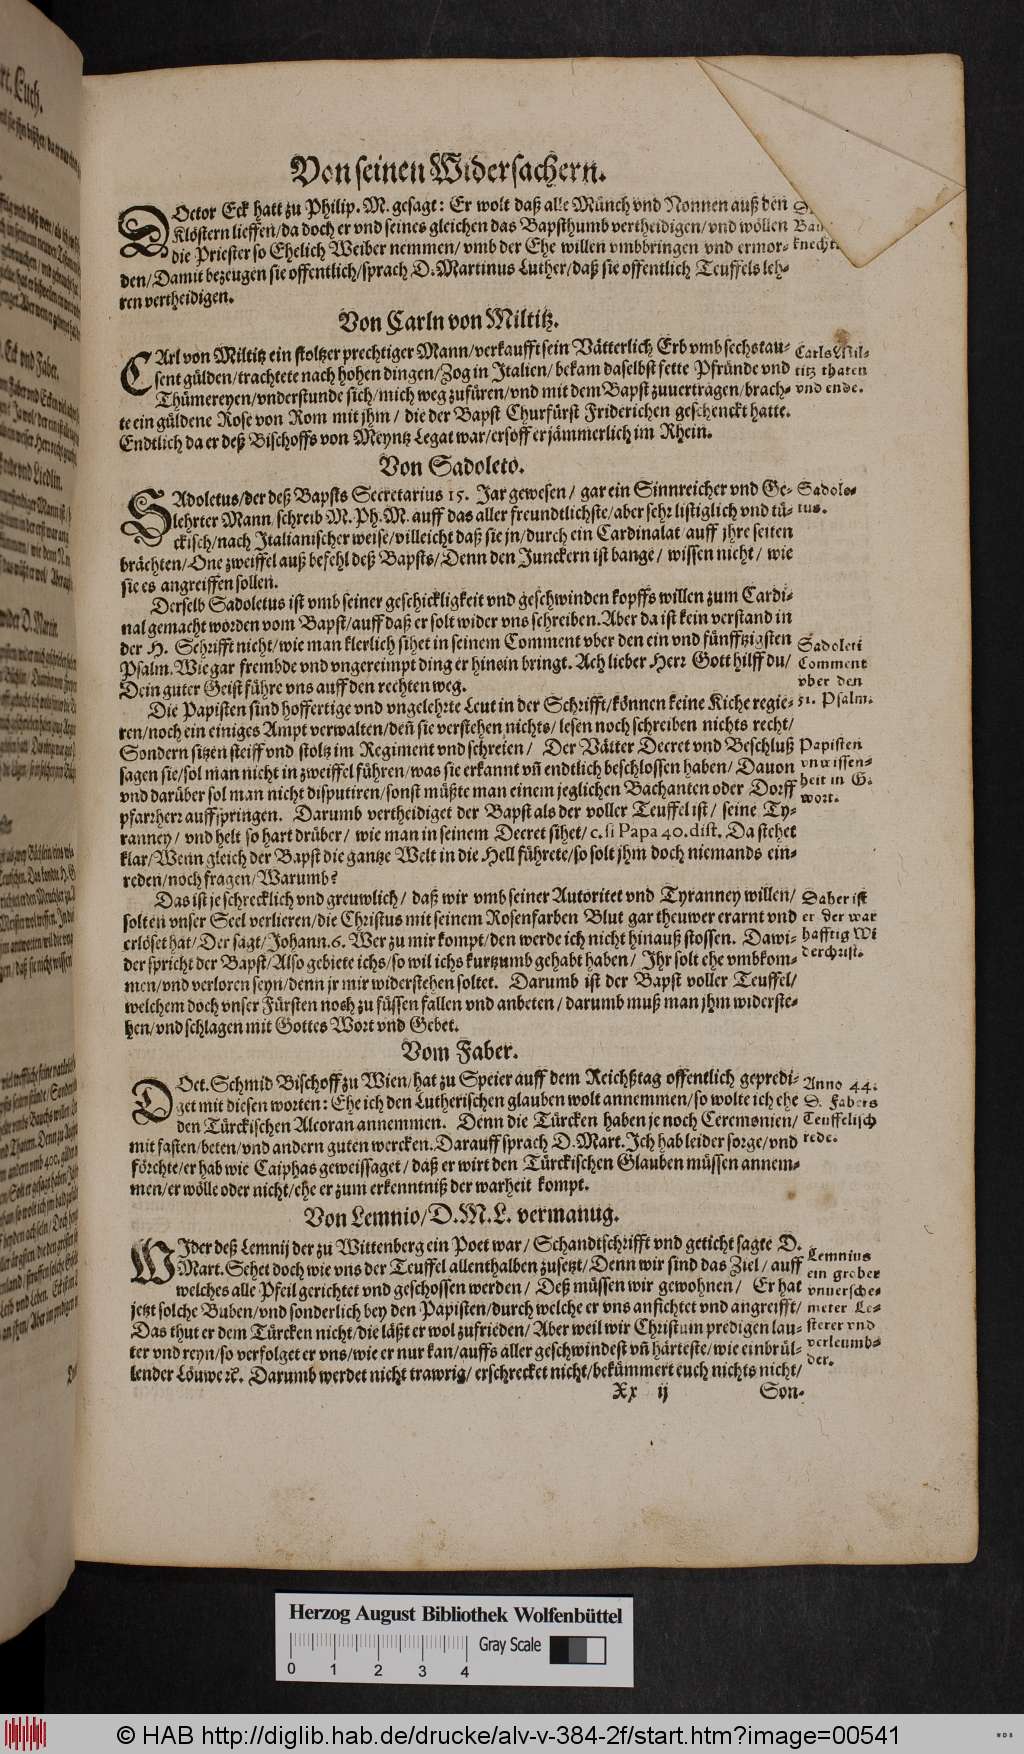 Von seinen Widersachern.
DOctor Eck hatt zu Philip. M. gesagt: Er wolt daß alle Münch vnd Nonnen auß den
Klöstern lieffen/da doch er vnd seines gleichen das Bapsthumb vertheidigen/vnd wöllen
die Priester so Ehelich Weiber nemmen/ vmb der Ehe willen vmbbringen vnd ermor-
knecht
den/Damit bezeugen sie offentlich/sprach D. Martinus Luther/daß sie offentlich Teuffels leh-
ren vertheidigen.
Von Carln von Miltitz.
CArl von Miltitz ein stoltzer prechtiger Mann/verkaufft sein Vätterlich Erb vmb sechstau-
sent gülden/trachtete nach hohen dingen/Zog in Italien/bekam daselbst fette Pfründe vnd
Thümereyen/vnderstunde sich/mich weg zufüren/vnd mit dem Bapst zuuertragen/brach-
te ein güldene Rose von Rom mit jhm/ die der Bapst Churfürst Friderichen geschenckt hatte.
Endtlich da er deß Bischoffs von Meyntz Legat war/ersoff er jämmerlich im Rhein.
Carls Mil-
titz thaten
vnd ende.
Von Sadoleto.
SAdoletus/der deß Bapsts Secretarius 15. Jar gewesen/ gar ein Sinnreicher vnd Ge-
lehrter Mann/schreib M. Ph. M. auff das aller freundtlichste/aber sehr listiglich vnd tü-
ckisch/nach Italianischer weise/villeicht daß sie jn/durch ein Cardinalat/auff jhre seiten
brächten/One zweiffel auß befehl deß Bapsts/Denn den Junckern ist bange/ wissen nicht/ wie
sie es angreiffen sollen.
Sadole-
tus.
Derselb Sadoletus ist vmb seiner geschickligkeit vnd geschwinden kopffs willen zum Cardi-
nal gemacht worden vom Bapst/auff daß er solt wider vns schreiben. Aber da ist kein verstand in
der H. Schrifft nicht/wie man klerlich sihet in seinem Comment vber den ein vnd fünfftzigsten
Psalm. Wie gar frembde vnd vngereimpt ding er hinein bringt. Ach lieber Herr Gott hilff du/
Dein guter Geist führe vns auff den rechten weg.
Sadoleti
Comment
vber den
51. Psalm.
Die Papisten sind hoffertige vnd vngelehrte Leut in der Schrifft/können keine Kiche regie-
ren/noch ein einiges Ampt verwalten/deñ sie verstehen nichts/ lesen noch schreiben nichts recht/
Sondern sitzen steiff vnd stoltz im Regiment vnd schreien/ Der Vätter Decret vnd Beschluß
sagen sie/sol man nicht in zweiffel führen/was sie erkannt vñ endtlich beschlossen haben/ Dauon
vnd darüber sol man nicht disputiren/sonst müßte man einem jeglichen Bachanten oder Dorff
pfarrherr auffspringen. Darumb vertheidiget der Bapst als der voller Teuffel ist/ seine Ty-
ranney/ vnd helt so hart drüber/ wie man in seinem Decret sihet/ c. si Papa 40. dist. Da stehet
klar/Wenn gleich der Bapst die gantze Welt in die Hell führete/so solt jhm doch niemands ein-
reden/noch fragen/Warumb?
Papisten
vnwissen-
heit in G.
wort.
Das ist je schrecklich vnd greuwlich/ daß wir vmb seiner Autoritet vnd Tyranney willen/
solten vnser Seel verlieren/die Christus mit seinem Rosenfarben Blut gar theuwer erarnt vnd
erlöset hat/Der sagt/Johann. 6. Wer zu mir kompt/den werde ich nicht hinauß stossen. Dawi-
der spricht der Bapst/Also gebiete ichs/so wil ichs kurtzumb gehabt haben/ Jhr solt ehe vmbkom-
men/vnd verloren seyn/denn jr mir widerstehen soltet. Darumb ist der Bapst voller Teuffel/
welchem doch vnser Fürsten noch zu füssen fallen vnd anbeten/ darumb muß man jhm widerste-
hen/vnd schlagen mit Gottes Wort vnd Gebet.
Daher ist
er der war
hafftig Wi
derchrist.
Vom Faber.
DOct. Schmid Bischoff zu Wien/hat zu Speier auff dem Reichßtag offentlich gepredi-
get mit diesen worten: Ehe ich den Lutherischen glauben wolt annemmen/so wolte ich ehe
den Türckischen Alcoran annemmen. Denn die Türcken haben je noch Ceremonien/
mit fasten/beten/vnd andern guten wercken. Darauff sprach D. Mart. Ich hab leider sorge/vnd
förchte/er hab wie Caiphas geweissaget/ daß er wirt den Türckischen Glauben müssen annem-
men/er wölle oder nicht/ehe er zum erkenntniß der warheit kompt.
Anno 44.
D. Fabers
Teuffelisch
rede.
Von Lemnio/D. M. L. vermanug.
WIder deß Lemnij der zu Wittenberg ein Poet war/ Schandtschrifft vnd geticht sagte D.
Mart. Sehet doch wie vns der Teuffel allenthalben zusetzt/Denn wir sind das Ziel/ auff
welches alle Pfeil gerichtet vnd geschossen werden/ Deß müssen wir gewohnen/ Er hat
jetzt solche Buben/vnd sonderlich bey den Papisten/durch welche er vns anfichtet vnd angreifft/
Das thut er dem Türcken nicht/die läßt er wol zufrieden/ Aber weil wir Christum predigen lau-
ter vnd reyn/so verfolget er vns/wie er nur kan/auffs aller geschwindest vñ härteste/wie ein brül-
lender Löuwe ꝛc. Darumb werdet nicht trawrig/ erschrecket nicht/bekümmert euch nichts nicht/
Lemnius
ein grober
vnuersche-
meter Le-
sterer vnd
verleumb-
der.
Xx ij
Son-
Herzog August Bibliothek Wolfenbüttel
Gray Scale
0 1 2 3 4
© HAB http://diglib.hab.de/drucke/alv-v-384-2f/start.htm?image=00541